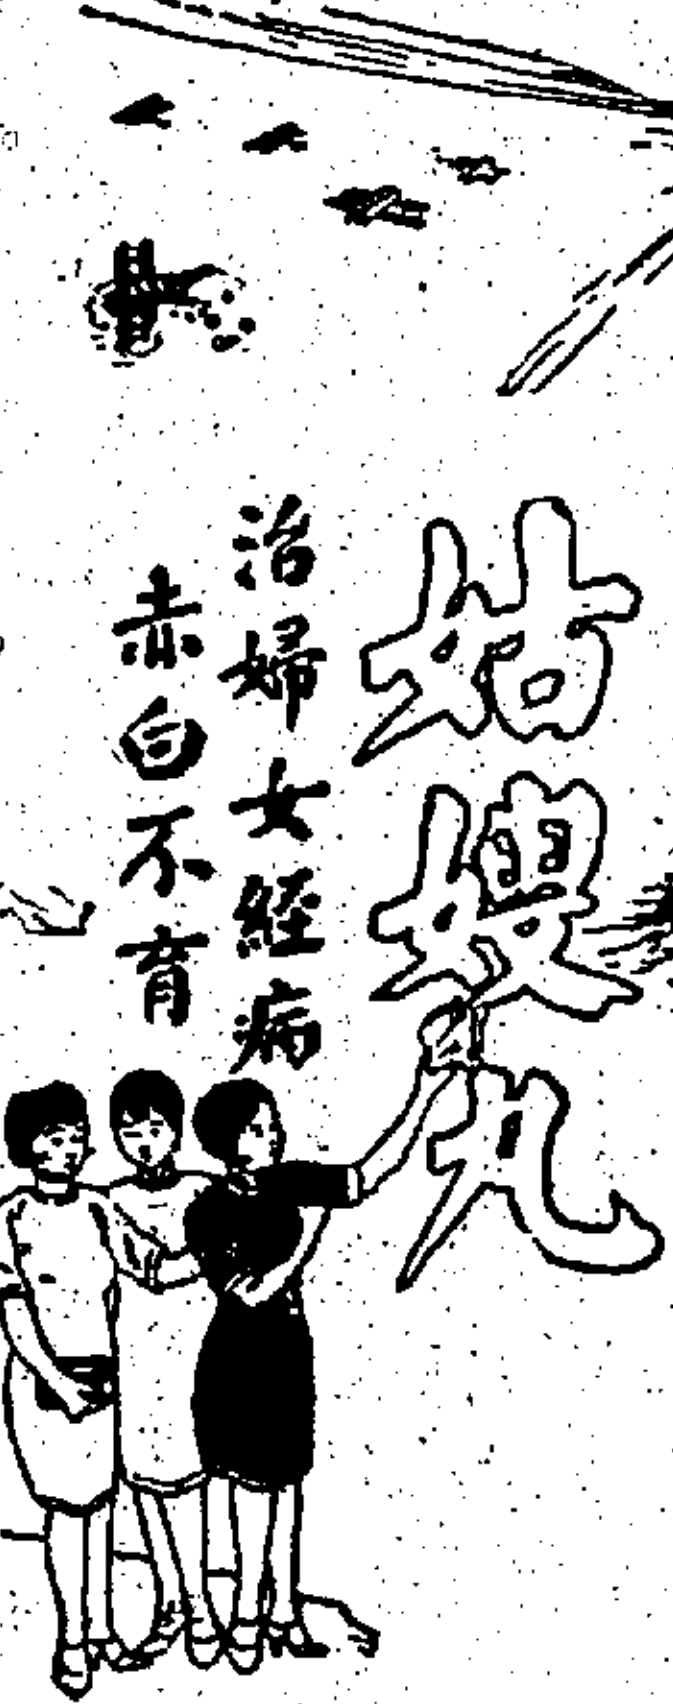 姑嫂丸
治婦女經病
赤白不育